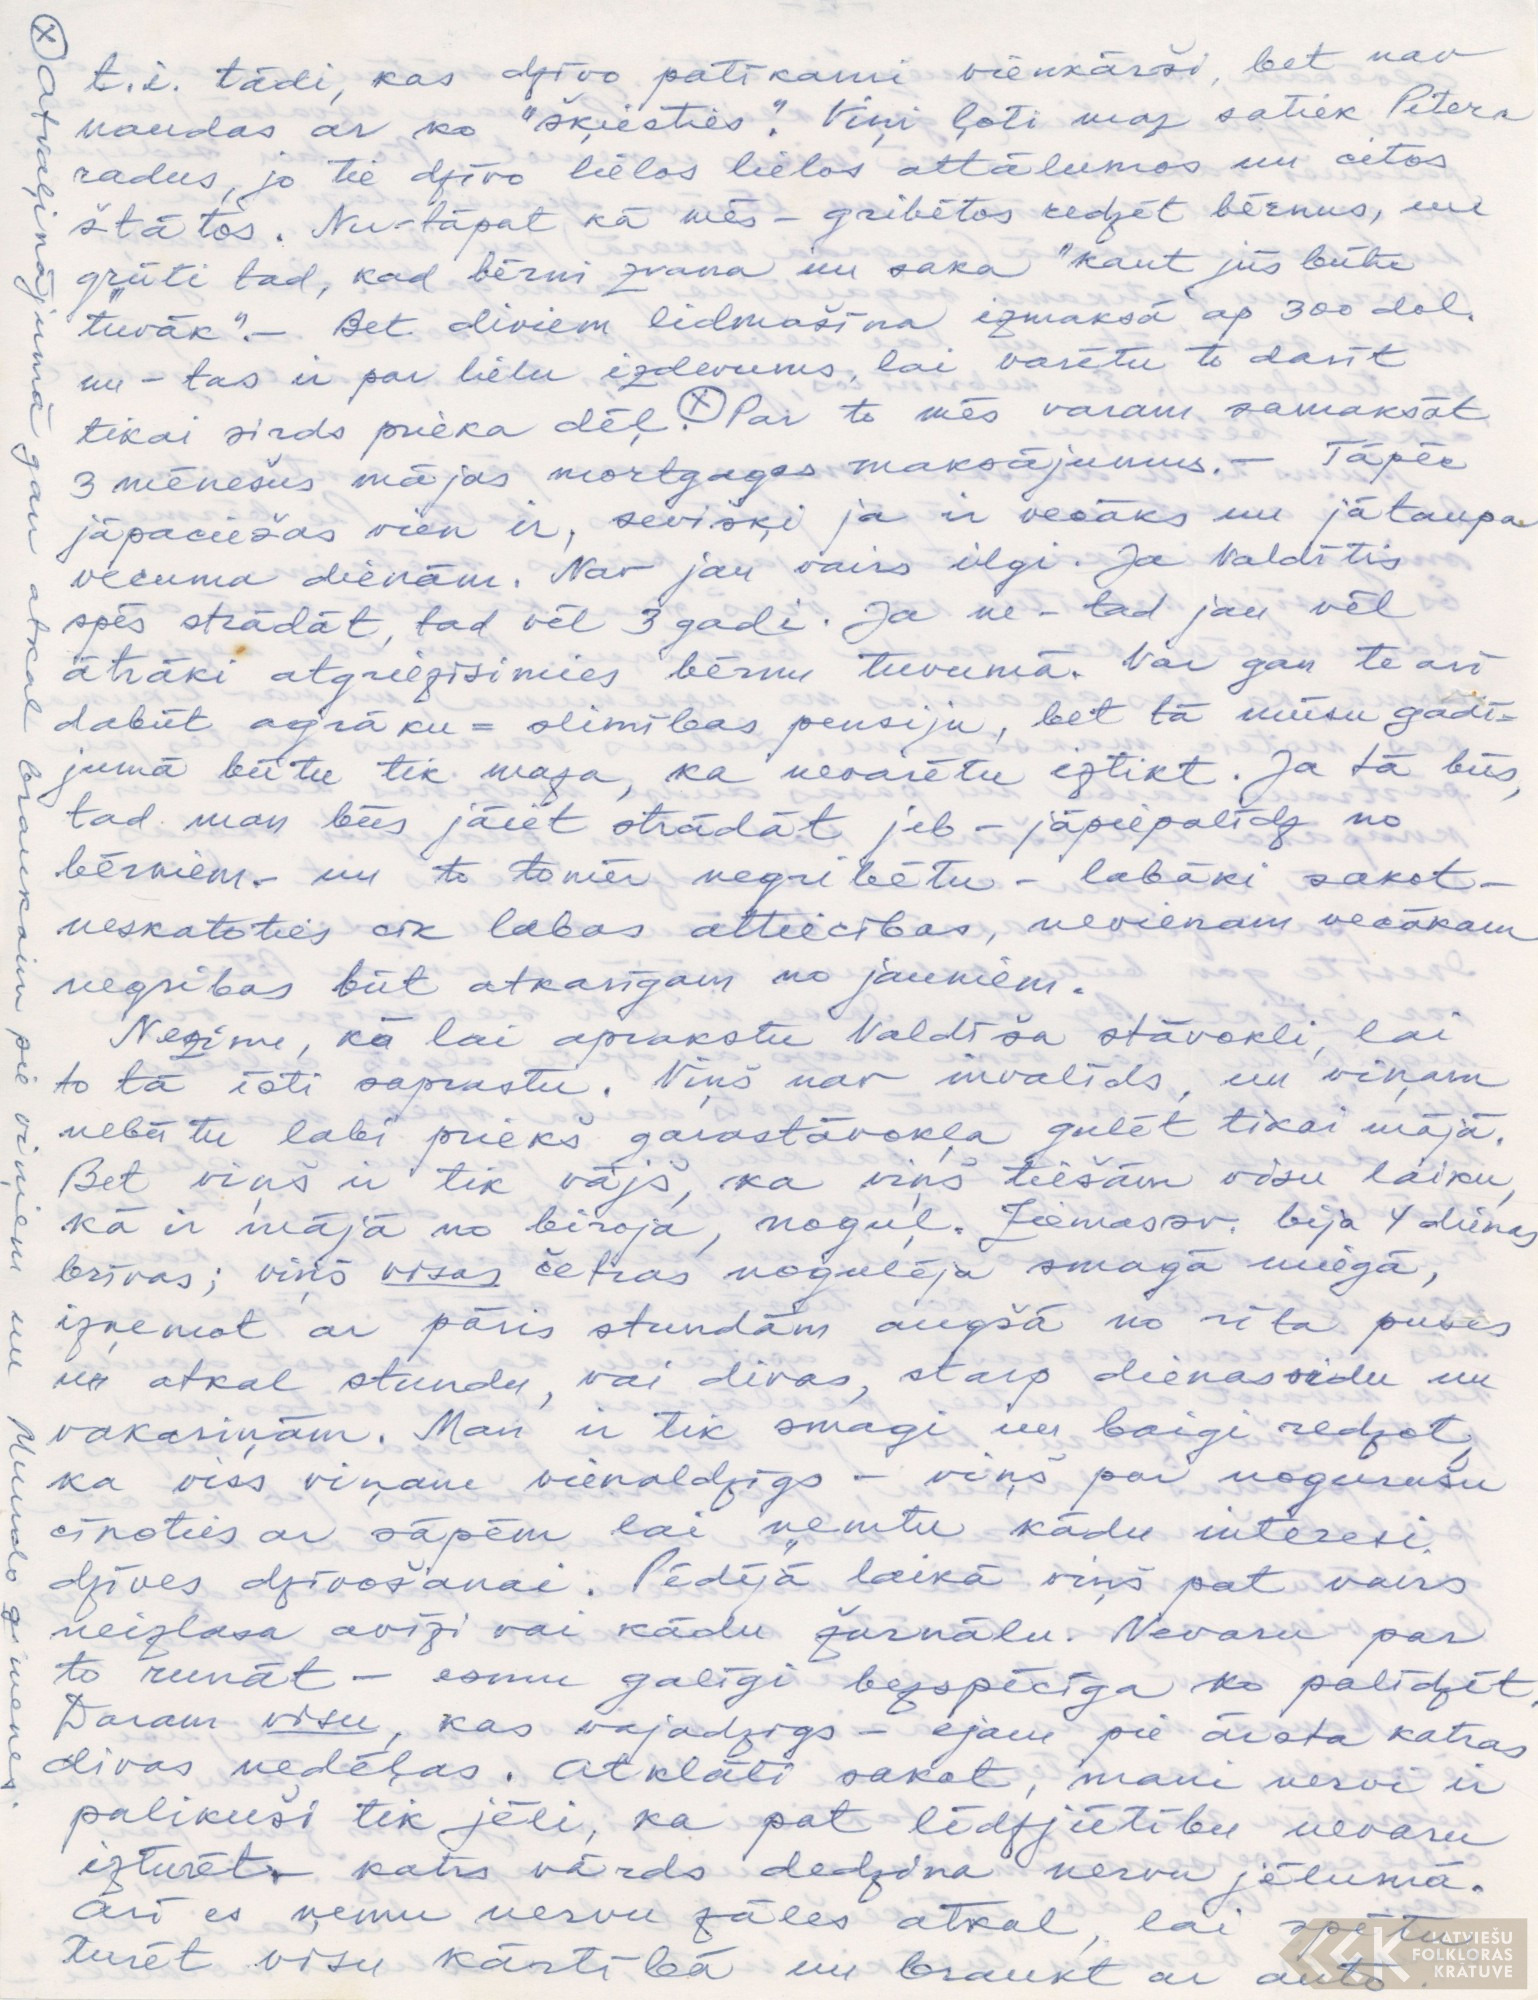 t.i. tādi, kas dzīvo patīkami vienkārši, bet nav
naudas ar ko "šķiesties". Viņi ļoti maz satiek Pitera
radus, jo tie dzīvo lielos lielos attālumos un citos
štātos. Nu-tāpat kā mēs - gribētos redzēt bērnus, un
grūti tad, kad bērni zvana un saka "kaut jūs būtu
"tuvāk". - Bet diviem lidmašīna izmaksā ap 300 dol.
nu - tas ir par lielu izdevums, lai varētu to darīt
tikai sirds prieka dēļ. (x) Par to mēs varam samaksāt
3 mēnešus mājas mortgages maksājumus. - Tāpēc
jāpaciešas vien ir, sevišķi ja ir vecāks un jātaupa
vecuma dienām. Nav jau vairs ilgi. Ja Valdītis
spēs strādāt, tad vēl 3 gadi. Ja ne - tad jau vēl
ātrāki atgriezīsimies bērnu tuvumā. Var gan te arī
dabūt agrāku = slimības pensiju, bet tā mūsu gadī=
jumā būtu tik maza, ka nevarētu iztikt. Ja tā būs,
tad man būs jāiet strādāt jeb - jāpiepalīdz no
bērniem. - un to tomēr negribētu - labāki sakot -
neskatoties cik labas attiecības, nevienam vecākam
negribas būt atkarīgam no jauniem.
Nezinu, kā lai aprakstu Valdīša stāvokli, lai
to tā īsti saprastu. Viņš nav invalīds, un viņam
nebūtu labi priekš garastāvokļa gulēt tikai mājā.
Bet viņš ir tik vājš, ka viņš tiešām visu laiku,
kā ir mājā no biroja, noguļ. Ziemassv. bija 4 dienas
brīvas; viņš visas četras nogulēja smagā miegā,
izņemot ar pāris stundām augšā no rīta puses
un atkal stundu, vai divas, starp dienasvidu un
vakariņām. Man ir tik smagi un baigi redzot,
ka viss viņam vienaldzīgs - viņš par nogurušu
cīnoties ar sāpēm lai ņemtu kādu interesi
dzīves dzīvošanai. Pēdējā laikā viņš pat vairs
neizlasa avīzi vai kādu žurnālu. Nevaru par
to runāt - esmu galīgi bezspēcīga ko palīdzēt.
Daram visu, kas vajadzīgs - ejam pie ārsta katras
divas nedēļas. Atklāti sakot, mani nervi ir
palikuši tik jēli, ka pat līdzjūtību nevaru
izturēt. - katrs vārds dedzina nervu jēlumā.
Arī es ņemu nervu zāles atkal, lai spētu
turēt visu kārtībā un braukt ar auto.
(x) Atvaļinājumā gan atkal brauksim pie viņiem un Mundo ģimenes.
LATVIEŠU
FOLKLORAS
KRĀTUVE